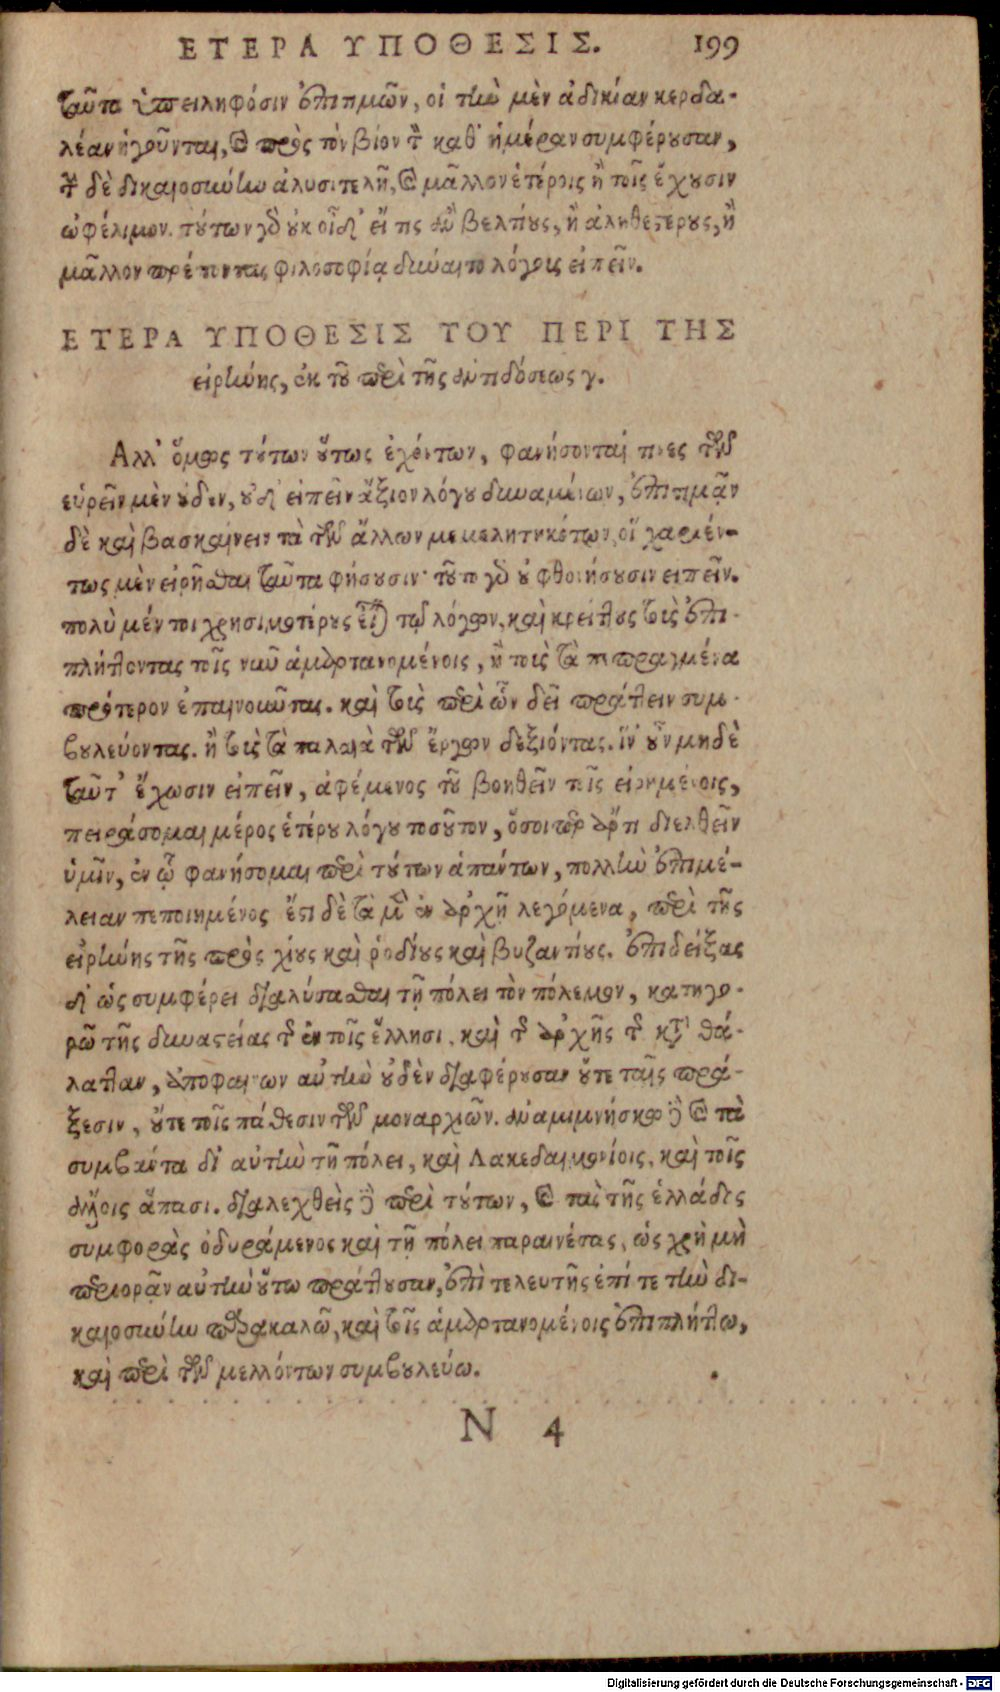 ΕΤΕΡΑ ΥΠΟΘΕΣΙΣ. 199
ταῦτα ὑπειληφόσιν ἐπιτιμῶν, οἱ τὴν μὲν ἀδικίαν κερδα-
λέαν ἡγοῦνται, καὶ πρὸς τὸν βίον τὸν καθ' ἡμέραν συμφέρουσαν,
τὴν δὲ δικαιοσύνην ἀλυσιτελῆ, καὶ μᾶλλον ἑτέροις ἢ τοῖς ἔχουσιν
ὠφέλιμον. τούτων γὰρ οὐκ οἶδ' εἴ τις ἂν βελτίους, ἢ ἀληθεστέρους, ἢ
μᾶλλον πρέποντας φιλοσοφίᾳ δύναιτο λόγους εἰπεῖν.
ΕΤΕΡΑ ΥΠΟΘΕΣΙΣ ΤΟΥ ΠΕΡΙ ΤΗΣ
εἰρήνης, ἐκ τοῦ περὶ τῆς ἀντιδόσεως γ.
Αλλ' ὅμως τούτων οὕτως ἐχόντων, φανήσονταί τινες τῶν
εὑρεῖν μὲν οὐδὲν, οὐδ' εἰπεῖν ἄξιον λόγου δυναμένων, ἐπιτιμᾶν
δὲ καὶ βασκαίνειν τὰ τῶν ἄλλων μεμελητηκότων, οἳ χαριέν-
τως μὲν εἰρῆσθαι ταῦτα φήσουσιν· τοῦτο γὰρ οὐ φθονήσουσιν εἰπεῖν.
πολὺ μέντοι χρησιμωτέρους εἶναι τῶν λόγων, καὶ κρείττους τοὺς ἐπι-
πλήττοντας τοῖς νῦν ἁμαρτανομένοις, ἢ τοὺς τὰ πεπραγμένα
πρότερον ἐπαινοῦντας. καὶ τοὺς περὶ ὧν δεῖ πράττειν συμ-
βουλεύοντας. ἢ τοὺς τὰ παλαιὰ τῶν ἔργων δεξιόντας. ἵν' οὖν μηδὲ
ταῦτ' ἔχωσιν εἰπεῖν, ἀφέμενος τοῦ βοηθεῖν τοῖς εἰρημένοις,
πειράσομαι μέρος ἑτέρου λόγου τοσοῦτον, ὅσον περ ἄρτι διελθεῖν
ὑμῖν, ἐν ᾧ φανήσομαι περὶ τούτων ἁπάντων, πολλὴν ἐπιμέ-
λειαν πεποιημένος ἔστι δὲ τὰ μὲν ἐν ἀρχῇ λεγόμενα, περὶ τῆς
εἰρήνης τῆς πρὸς χίους καὶ ῥοδίους καὶ βυζαντίους. ἐπιδείξας
δ' ὡς συμφέρει διαλύσασθαι τῇ πόλει τὸν πόλεμον, κατηγο-
ρῶ τῆς δυναστείας τῆς ἐν τοῖς ἕλλησι, καὶ τῆς ἀρχῆς τῆς κατὰ θά-
λατταν, ἀποφαίνων αὐτὴν οὐδὲν διαφέρουσαν οὔτε ταῖς πρά-
ξεσιν, οὔτε τοῖς πάθεσιν τῶν μοναρχιῶν. ἀναμιμνήσκω δὲ καὶ τὰ
συμβάντα δι' αὐτὴν τῇ πόλει, καὶ Λακεδαιμονίοις, καὶ τοῖς
ἄλλοις ἅπασι. διαλεχθεὶς δὲ περὶ τούτων, καὶ τὰς τῆς ἑλλάδος
συμφορὰς ὀδυράμενος καὶ τῇ πόλει παραινέσας, ὡς χρὴ μὴ
περιορᾶν αὐτὴν οὕτω πράττουσαν, ἐπὶ τελευτῆς ἐπί τε τὴν δι-
καιοσύνην παρακαλῶ, καὶ τοῖς ἁμαρτανομένοις ἐπιπλήττω,
καὶ περὶ τῶν μελλόντων συμβουλεύω.
N 4
Digitalisierung gefördert durch die Deutsche Forschungsgemeinschaft - DFG